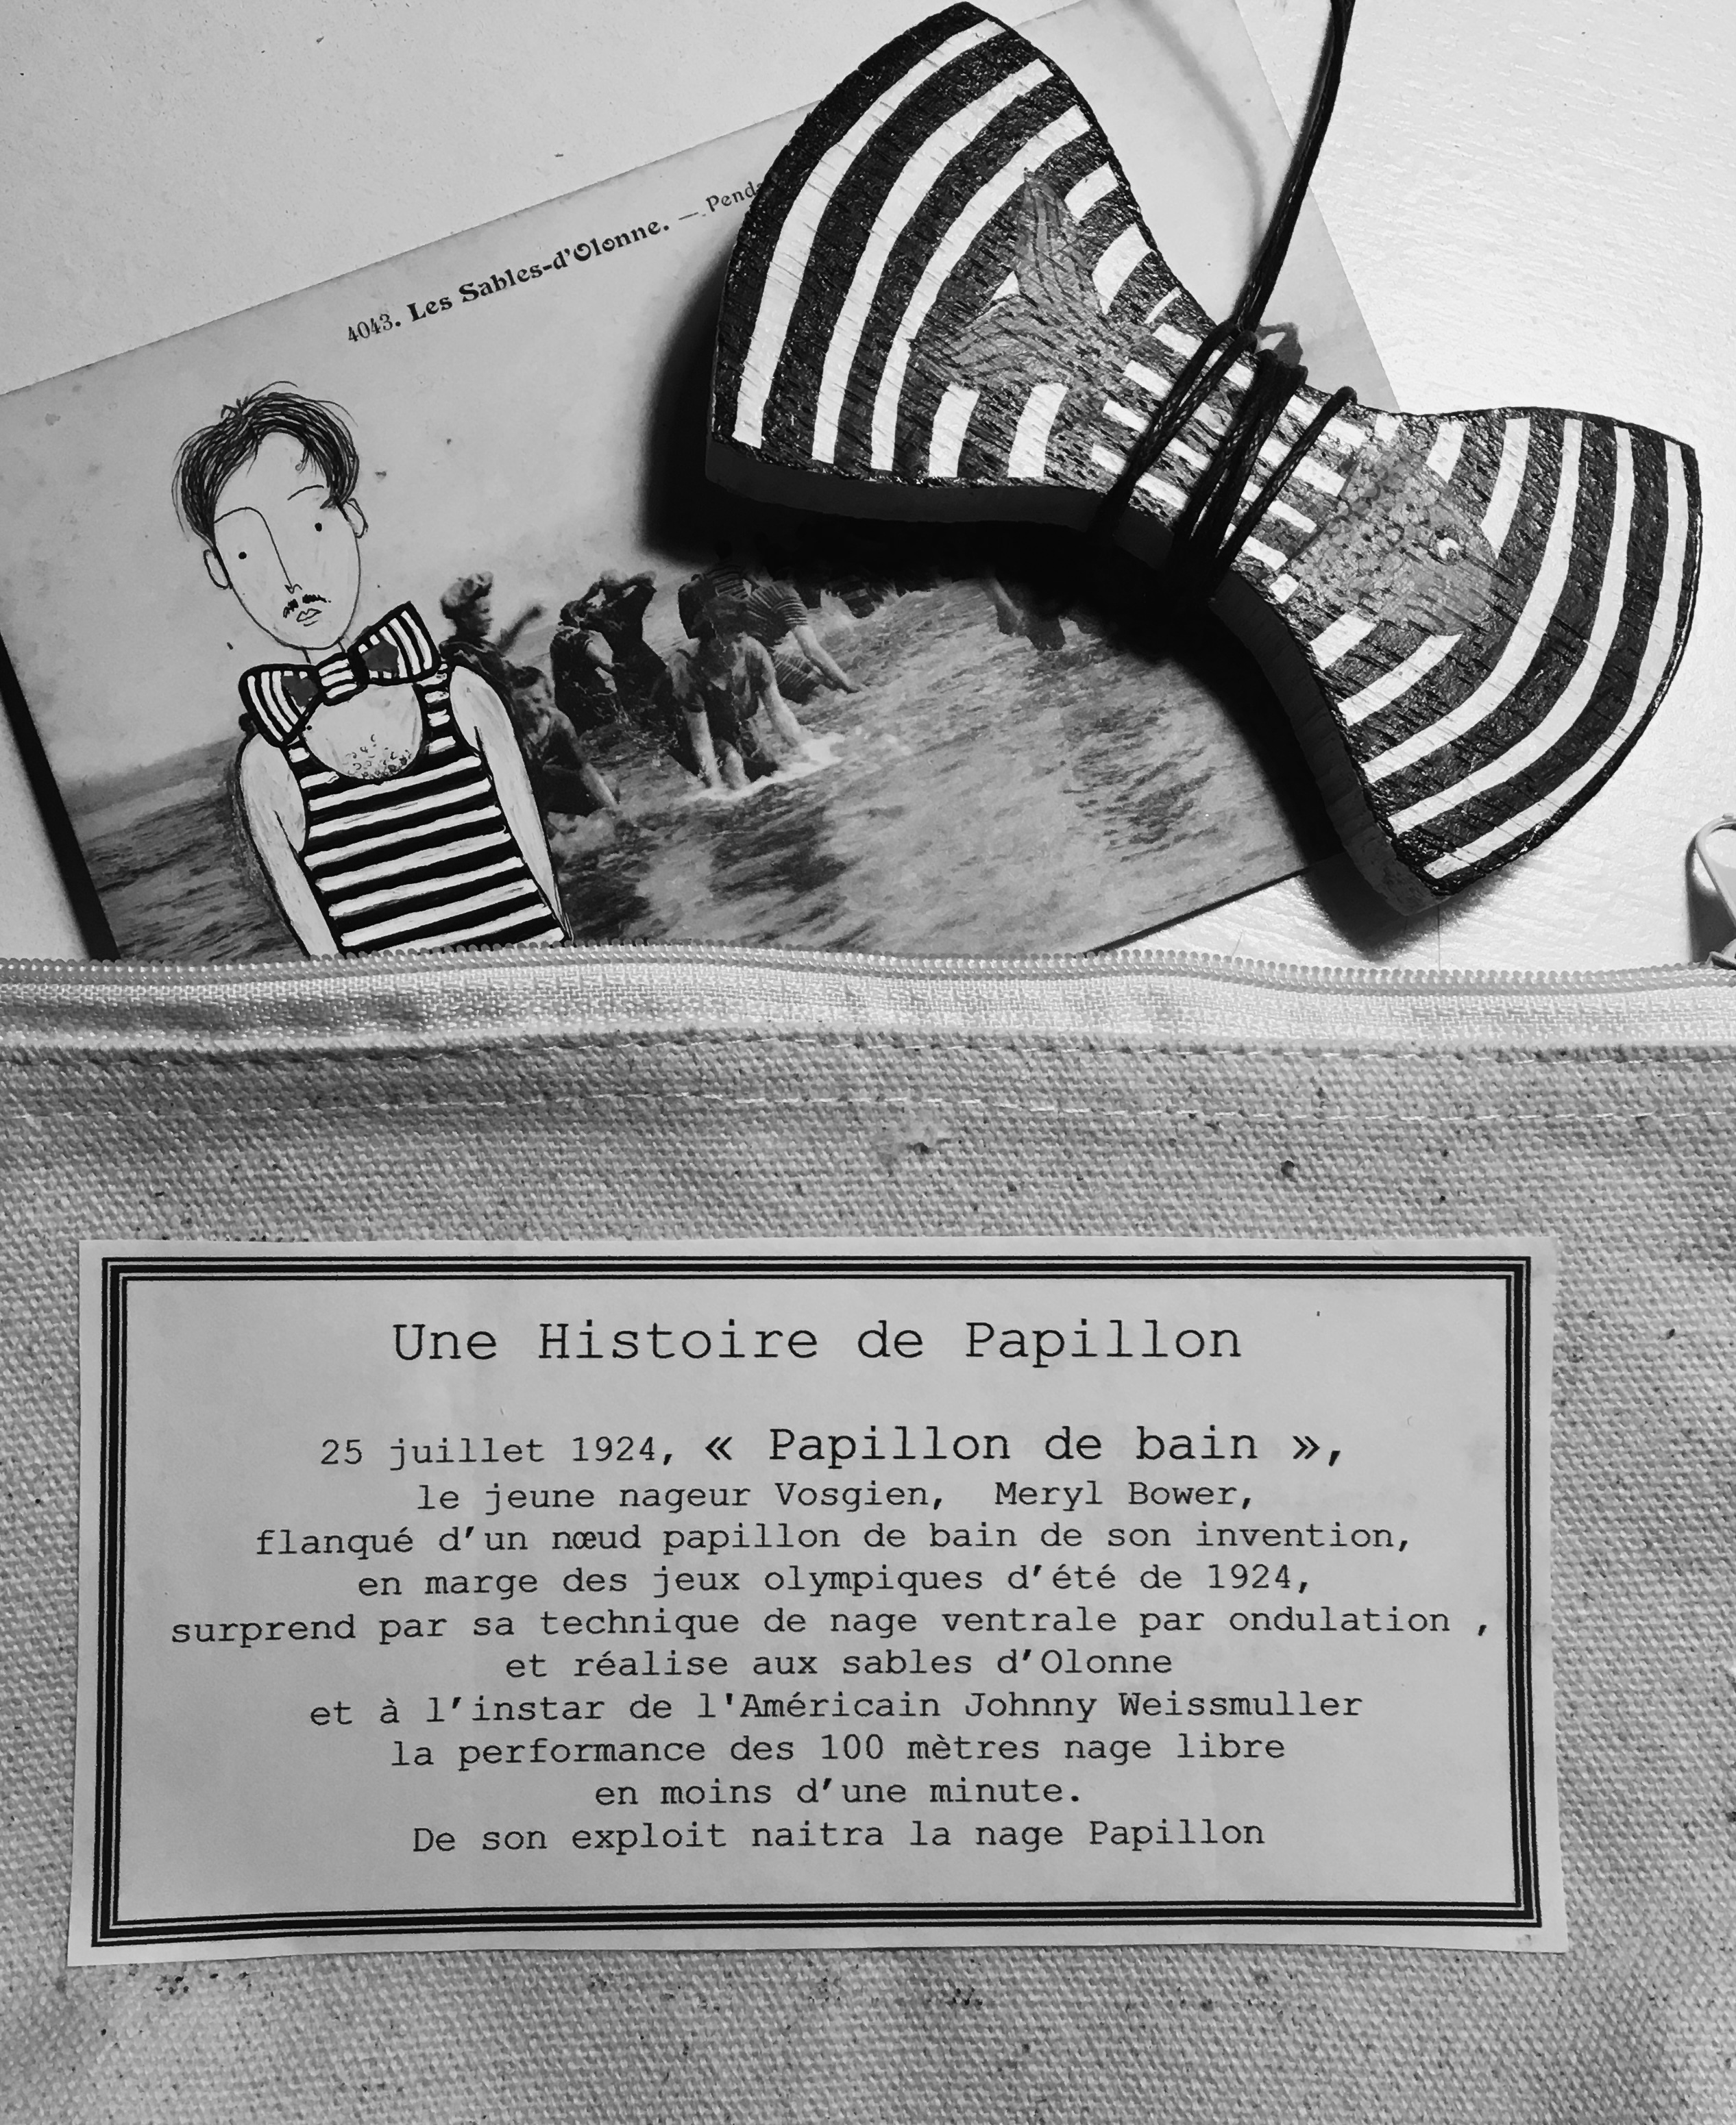 4043. Les Sables-d'Olonne. —
Une Histoire de Papillon
25 juillet 1924, « Papillon de bain »,
le jeune nageur Vosgien, Meryl Bower,
flanqué d'un nœud papillon de bain de son invention,
en marge des jeux olympiques d'été de 1924,
surprend par sa technique de nage ventrale par ondulation ,
et réalise aux sables d'Olonne
et à l'instar de l'Américain Johnny Weissmuller
la performance des 100 mètres nage libre
en moins d'une minute.
De son exploit naitra la nage Papillon